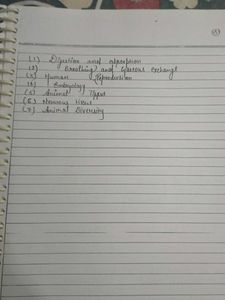 (1) Digestion and absorption
(2) Breathing and Gaseous Exchange
(3) Human Reproduction
(4) Embryology
(5) Animal
(6) Nervous
(7) Animal Diversity